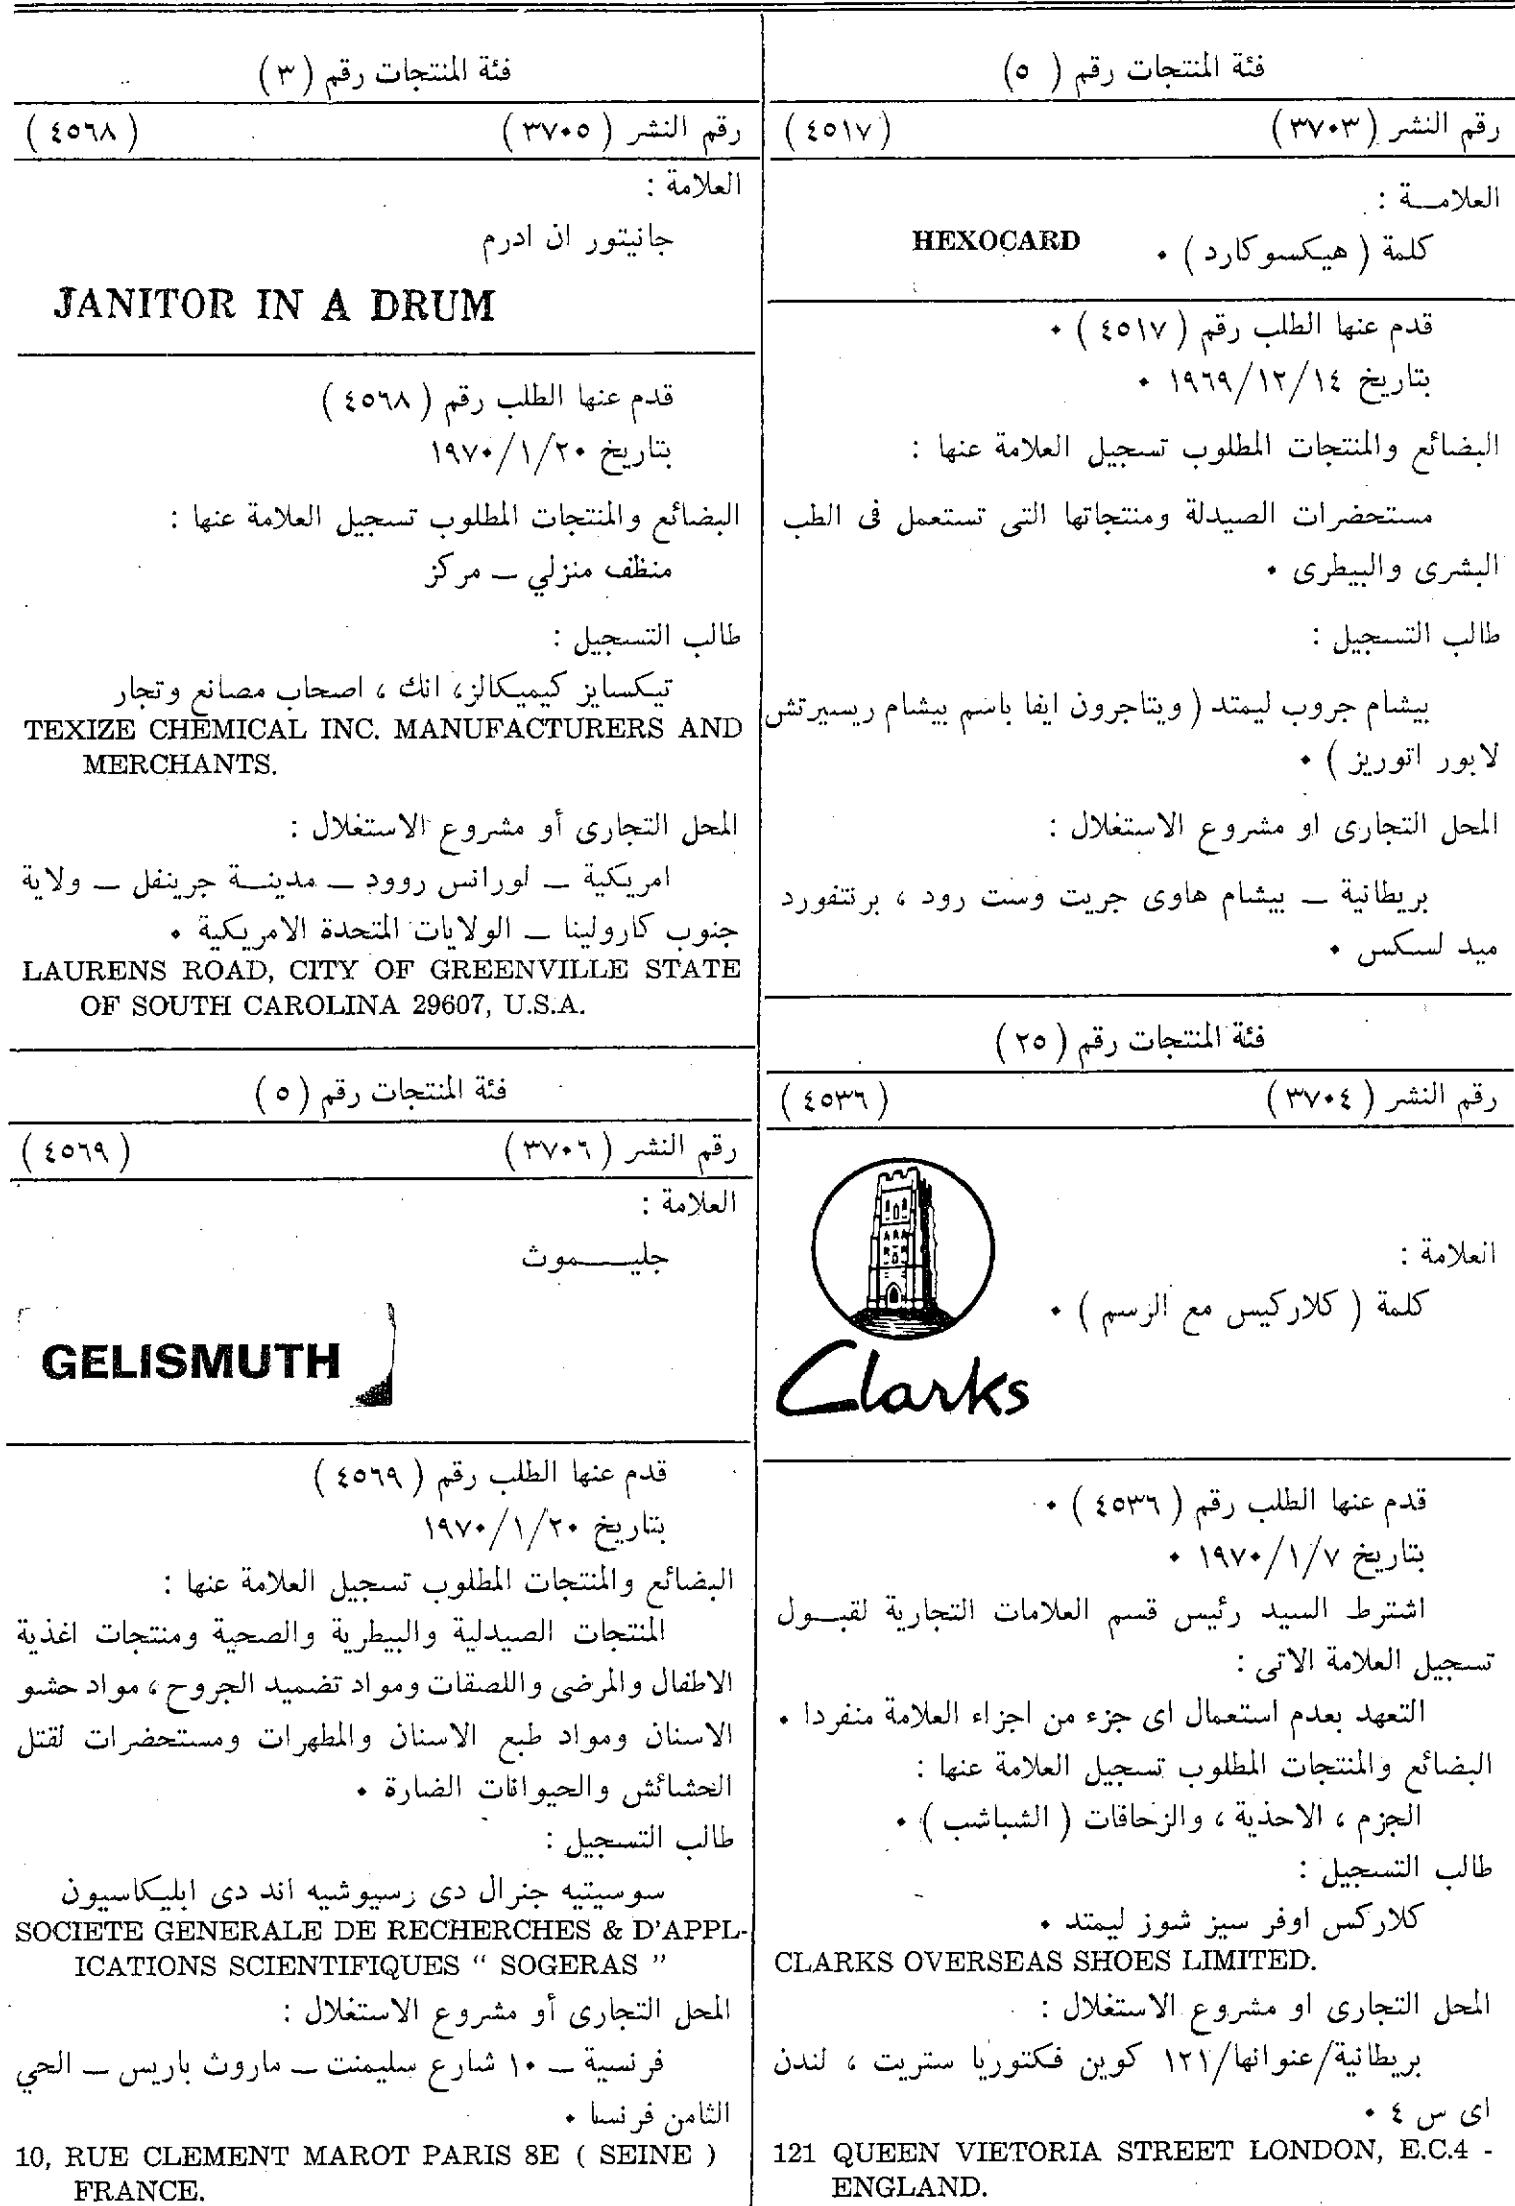 فئة المنتجات رقم ( ٥ )
رقم النشر ( ٣٧٠٣ ) ( ٤٥١٧ )
العلامــة :
كلمة ( هيكسوكارد ) ٠ HEXOCARD
قدم عنها الطلب رقم ( ٤٥١٧ ) ٠
بتاريخ ١٩٦٩/١٢/١٤ ٠
البضائع والمنتجات المطلوب تسجيل العلامة عنها :
مستحضرات الصيدلة ومنتجاتها التى تستعمل فى الطب
البشرى والبيطرى ٠
طالب التسجيل :
بيشام جروب ليمتد ( ويتاجرون ايفا باسم بيشام ريسيرتش
لابور اتوريز ) ٠
المحل التجارى او مشروع الاستغلال :
بريطانية ــ بيشام هاوى جريت وست رود ، برنتفورد
ميد لسكس ٠
فئة المنتجات رقم ( ٢٥ )
رقم النشر ( ٣٧٠٤ ) ( ٤٥٣٦ )
العلامة :
كلمة ( كلاركيس مع الرسم ) ٠
Clarks
قدم عنها الطلب رقم ( ٤٥٣٦ ) ٠
بتاريخ ١٩٧٠/١/٧ ٠
اشترط السيد رئيس قسم العلامات التجارية لقبــول
تسجيل العلامة الاتى :
التعهد بعدم استعمال اى جزء من اجزاء العلامة منفردا ٠
البضائع والمنتجات المطلوب تسجيل العلامة عنها :
الجزم ، الاحذية ، والزحافات ( الشباشب ) ٠
طالب التسجيل :
كلاركس اوفر سيز شوز ليمتد ٠
CLARKS OVERSEAS SHOES LIMITED.
المحل التجارى او مشروع الاستغلال :
بريطانية/عنوانها/١٢١ كوين فكتوريا ستريت ، لندن
اى س ٤ ٠
121 QUEEN VIETORIA STREET LONDON, E.C.4 -
ENGLAND.
فئة المنتجات رقم ( ٣ )
رقم النشر ( ٣٧٠٥ ) ( ٤٥٦٨ )
العلامة :
جانيتور ان ادرم
JANITOR IN A DRUM
قدم عنها الطلب رقم ( ٤٥٦٨ )
بتاريخ ١٩٧٠/١/٢٠
البضائع والمنتجات المطلوب تسجيل العلامة عنها :
منظف منزلي ــ مركز
طالب التسجيل :
تيكسايز كيميكالز، انك ، اصحاب مصانع وتجار
TEXIZE CHEMICAL INC. MANUFACTURERS AND
MERCHANTS.
المحل التجارى أو مشروع الاستغلال :
امريكية ــ لورانس روود ــ مدينــة جرينفل ــ ولاية
جنوب كارولينا ــ الولايات المتحدة الامريكية ٠
LAURENS ROAD, CITY OF GREENVILLE STATE
OF SOUTH CAROLINA 29607, U.S.A.
فئة المنتجات رقم ( ٥ )
رقم النشر ( ٣٧٠٦ ) ( ٤٥٦٩ )
العلامة :
جليـــــموث
GELISMUTH
قدم عنها الطلب رقم ( ٤٥٦٩ )
بتاريخ ١٩٧٠/١/٢٠
البضائع والمنتجات المطلوب تسجيل العلامة عنها :
المنتجات الصيدلية والبيطرية والصحية ومنتجات اغذية
الاطفال والمرضى واللصقات ومواد تضميد الجروح ، مواد حشو
الاسنان ومواد طبع الاسنان والمطهرات ومستحضرات لقتل
الحشائش والحيوانات الضارة ٠
طالب التسجيل :
سوسيتيه جنرال دى رسيوشيه اند دى ابليكاسيون
SOCIETE GENERALE DE RECHERCHES & D'APPL-
ICATIONS SCIENTIFIQUES “ SOGERAS ”
المحل التجارى أو مشروع الاستغلال :
فرنسية ــ ١٠ شارع سليمنت ــ ماروث باريس ــ الحي
الثامن فرنسا ٠
10, RUE CLEMENT MAROT PARIS 8E ( SEINE )
FRANCE.